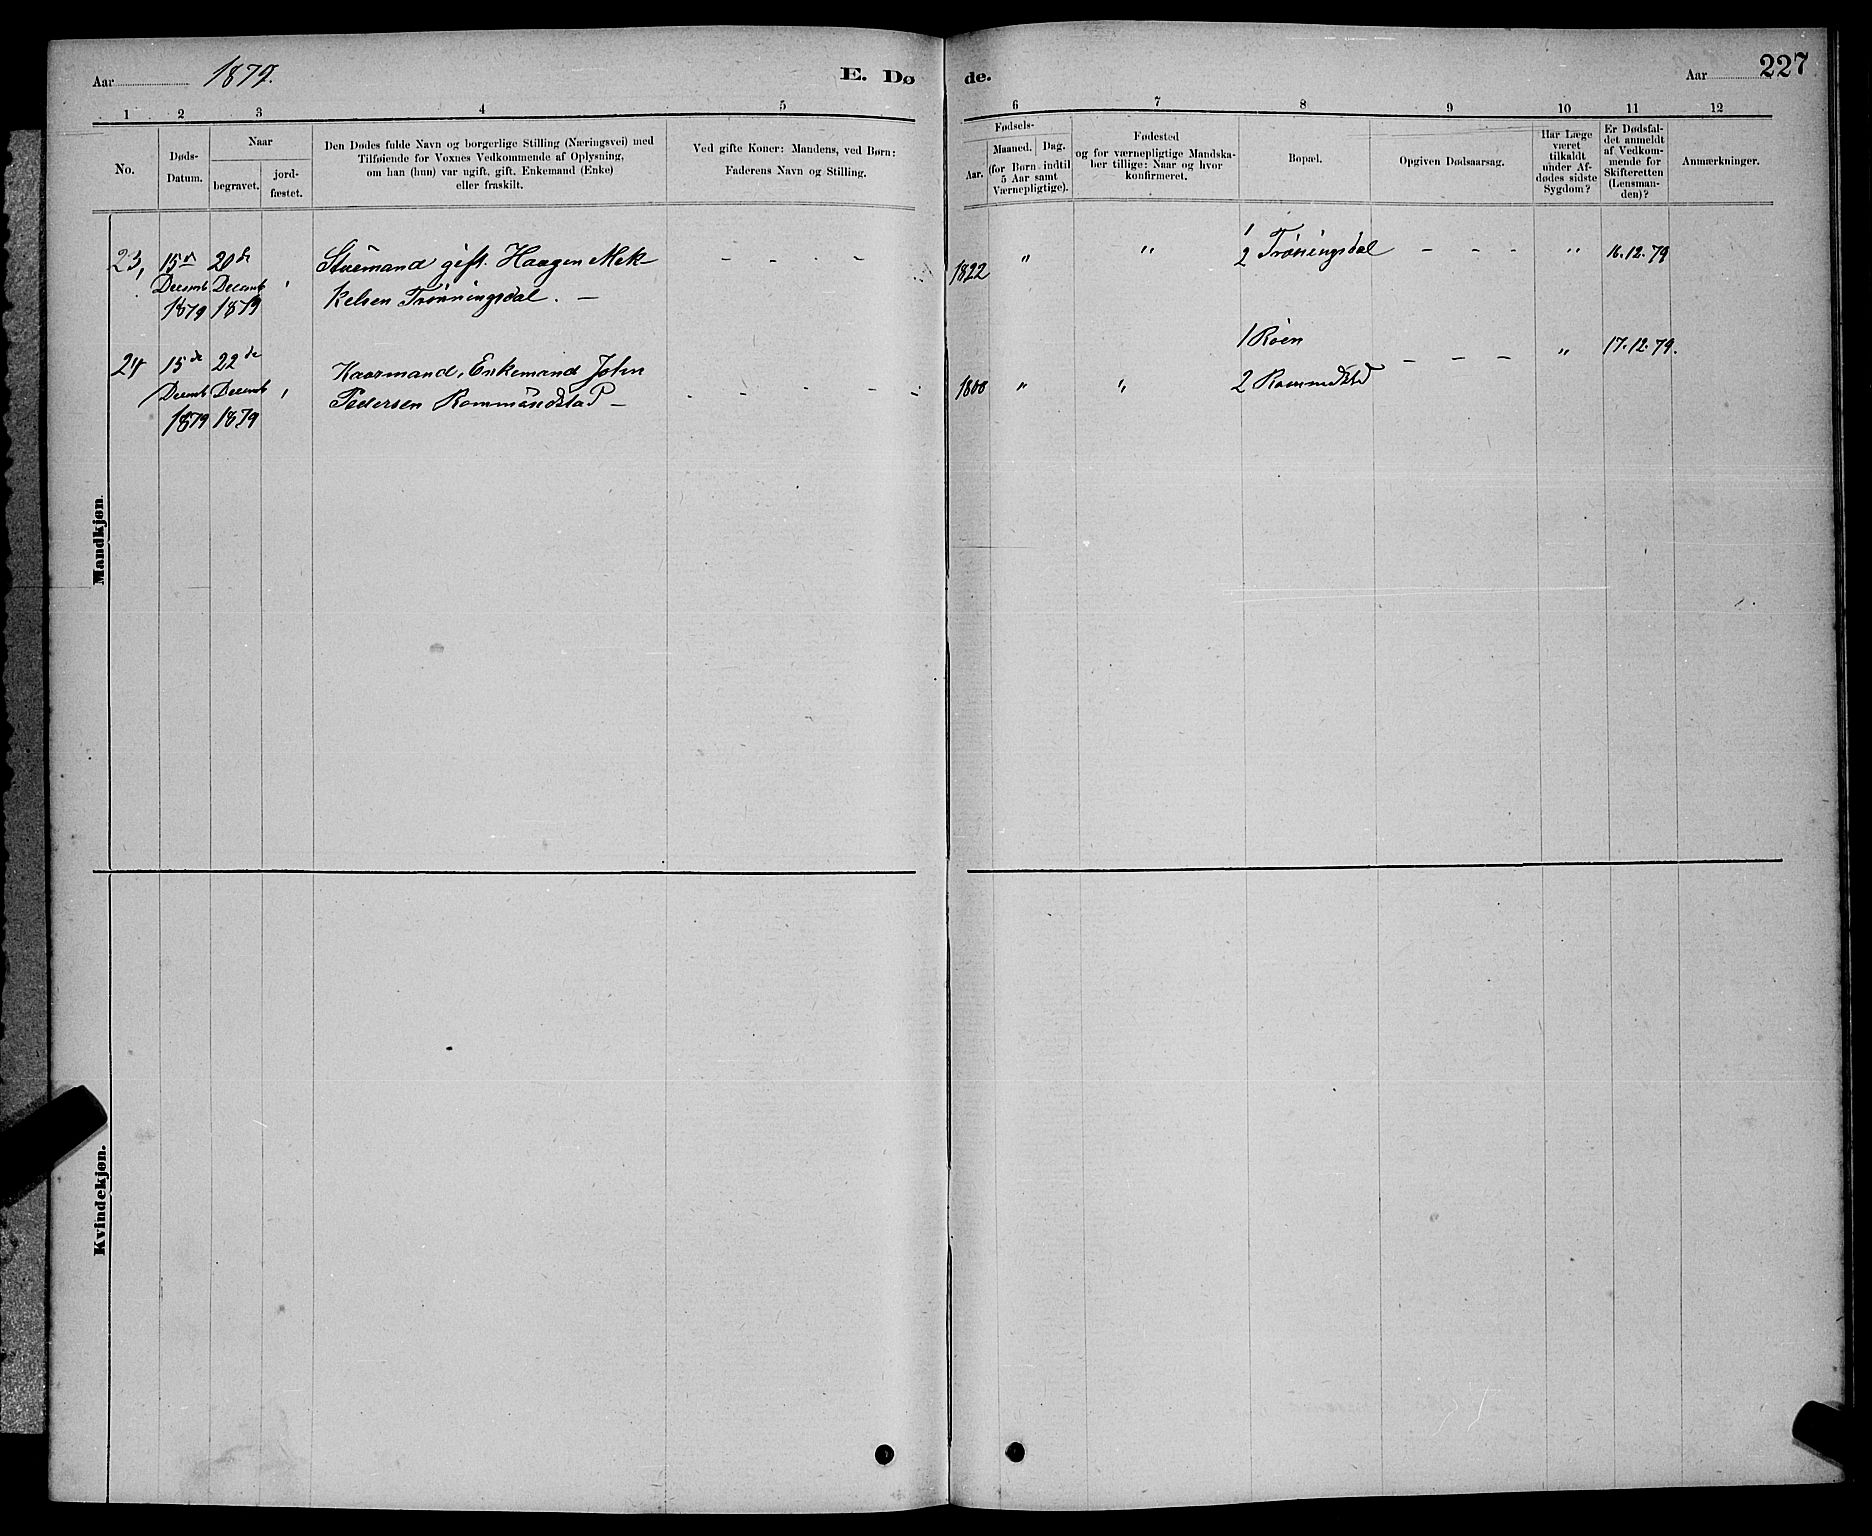 Aar 1879.
E. Dø
de.
Aar
227
1 2 3 4 5 6 7 8 9 10 11 12
No.
Døds-
Datum.
Naar
begravet.
jord-
fæstet.
Den Dødes fulde Navn og borgerlige Stilling (Næringsvei) med
Tilføiende for Voxnes Vedkommende af Oplysning,
om han (hun) var ugift, gift, Enkemand (Enke)
eller fraskilt.
Ved gifte Koner: Mandens, ved Børn:
Faderens Navn og Stilling.
Fødsels-
Aar.
Maaned.
Dag.
(for Børn indtil
5 Aar samt
Værnepligtige).
Fødested
og for værnepligtige Mandska-
ber tillige: Naar og hvor
konfirmeret.
Bopæl.
Opgiven Dødsaarsag.
Har Læge
været
tilkaldt
under Af-
dødes sidste
Sygdom?
Er Dødsfal-
det anmeldt
af Vedkom-
mende for
Skifteretten
(Lensman-
den)?
Anmærkninger.
Mandkjøn.
23, 15de 20de Stuemand gift. Haagen Mek- - - - - 1822 " " 1
2 Trønningsdal - - - " 16.12.79
Decemb Decemb , kelsen Trønningsdal. -
1879 1879
24 15de 22de Kaarmand, Enkemand John 1 Roen
Decemb Decemb , Pedersen Rommundstad - - - - - 1808 " " 2 Rommdstd - - - " 17.12.79.
1879 1879
Kvindekjøn.